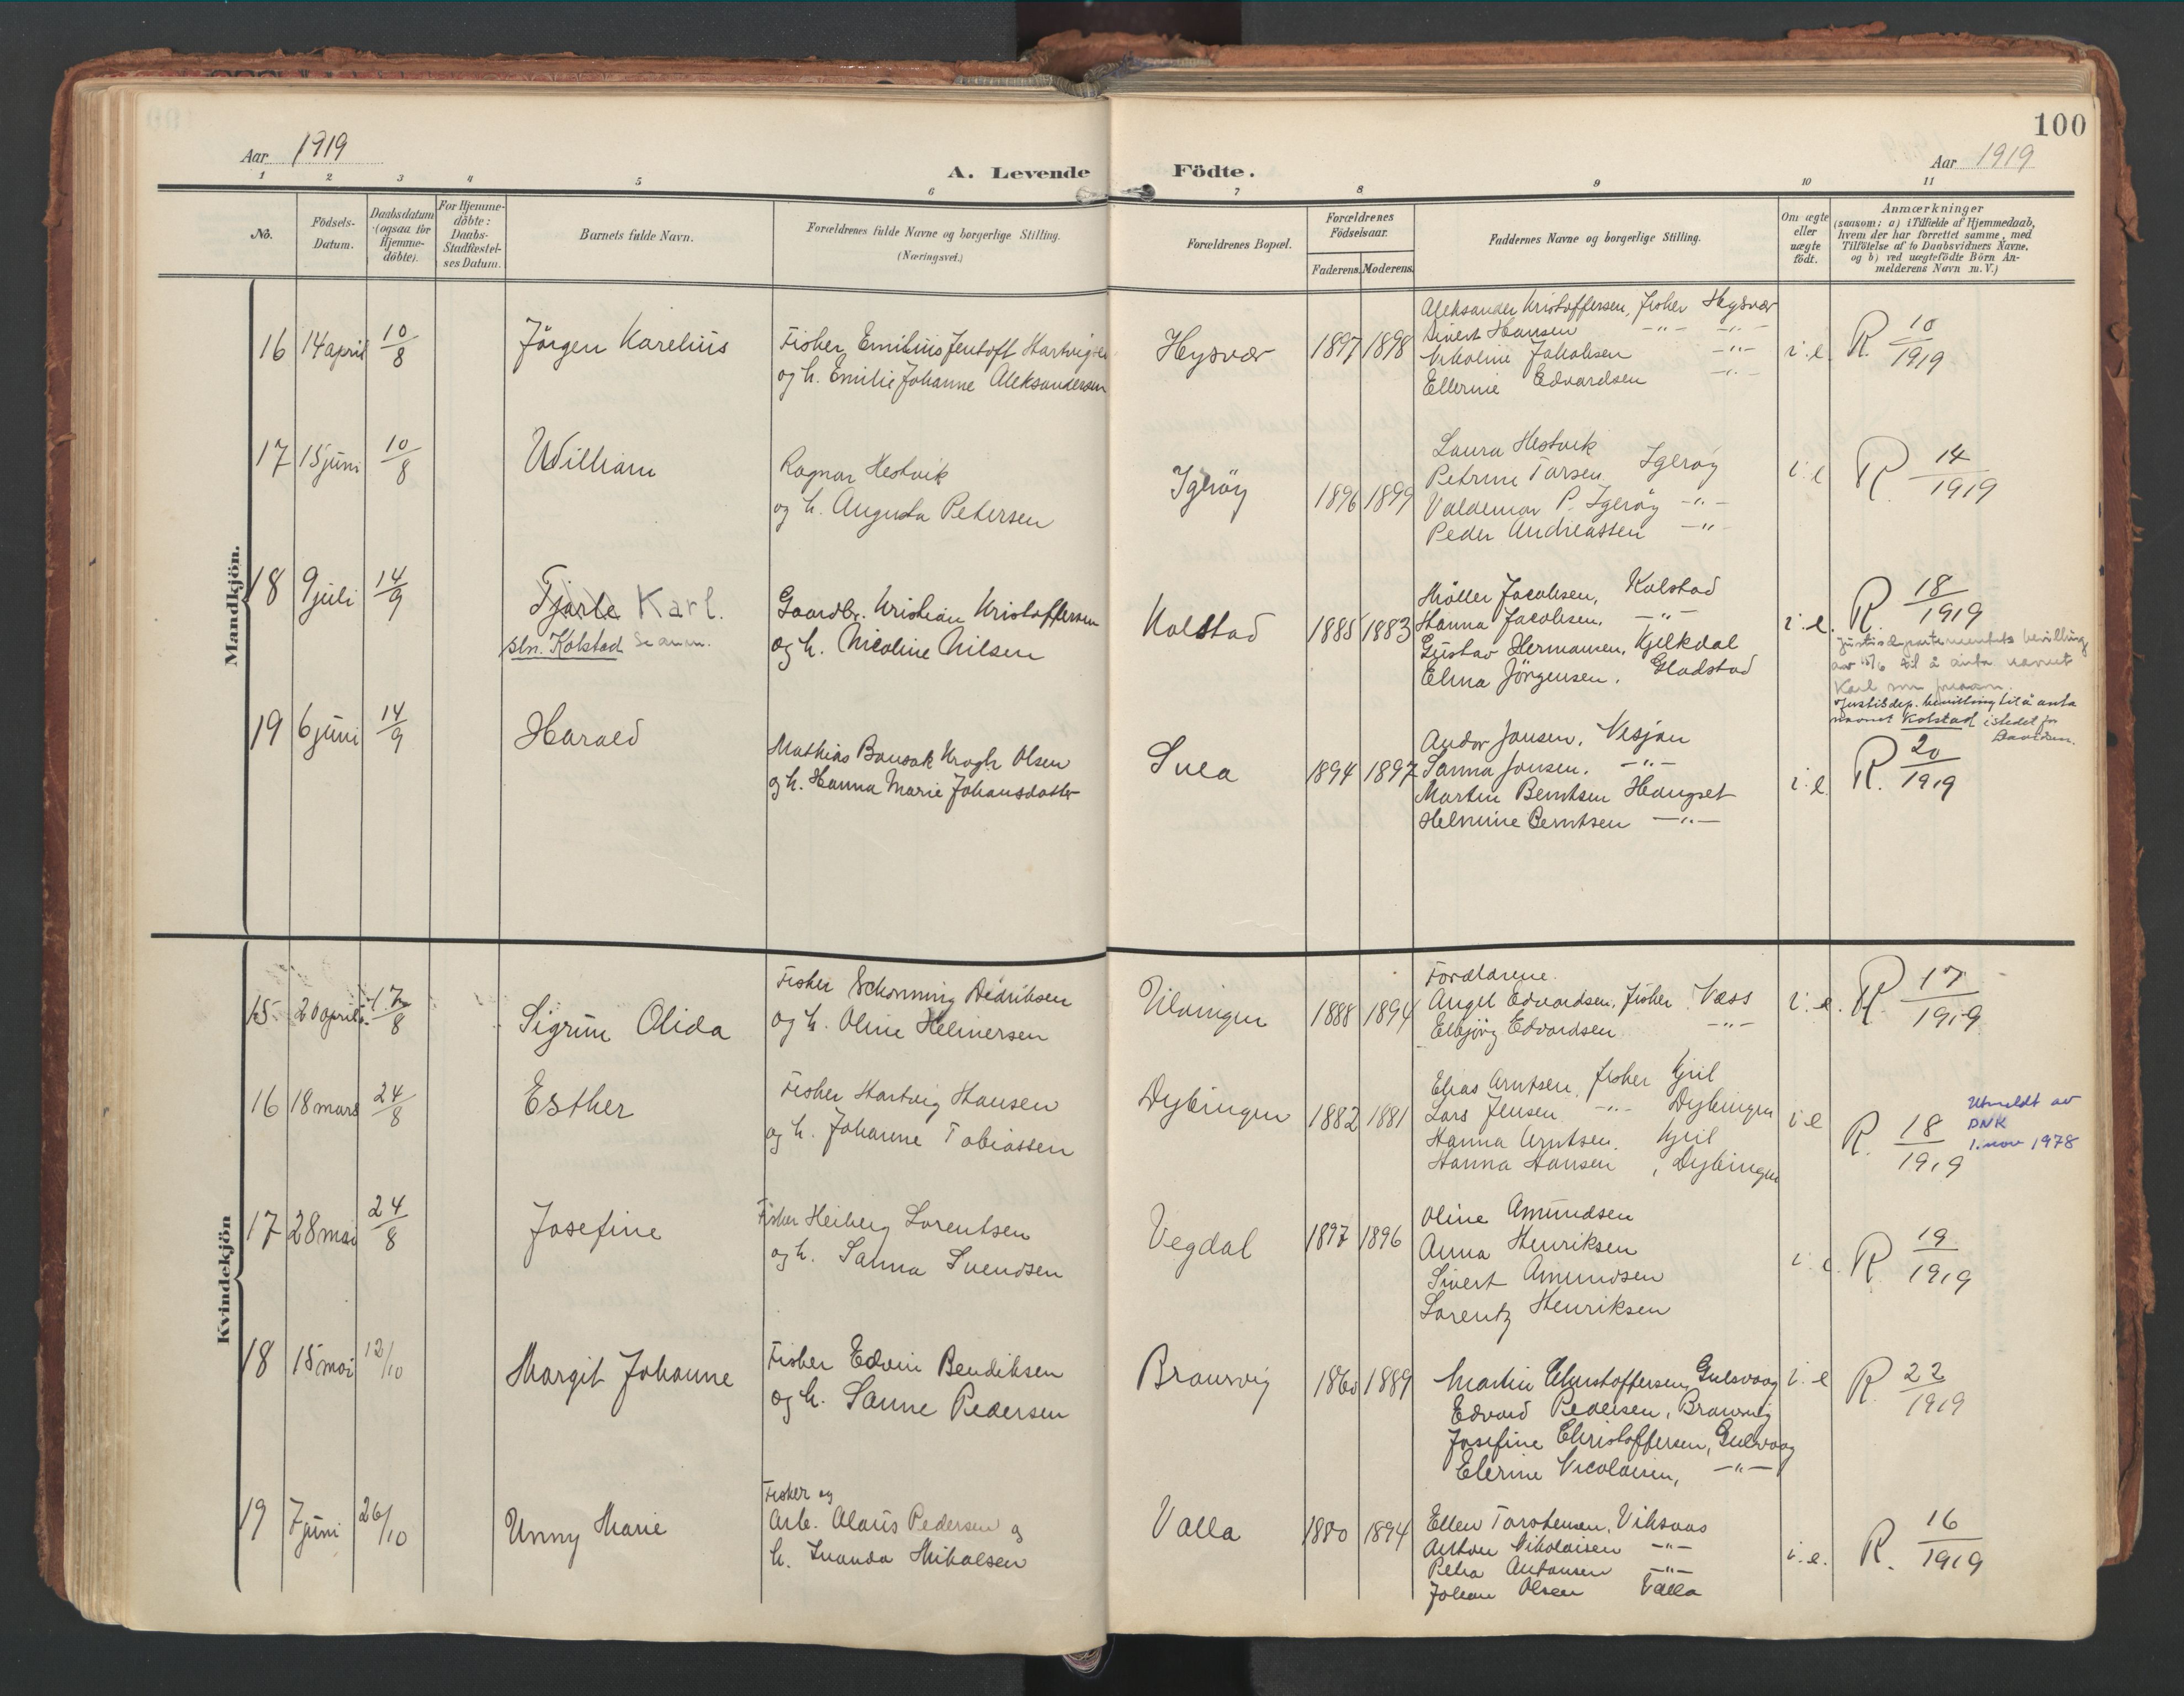 100
Aar 1919
A. Levende Födte.
Aar 1919
1 2 3 4 5 6 7 8 9 10 11
No.
Födsels-Datum.
Daabsdatum (ogsaa for Hjemme-döbte).
For Hjemme-döbte: Daabs-Stadfæstel-ses Datum.
Barnets fulde Navn.
Forældrenes fulde Navne og borgerlige Stilling.
(Næringsvei.)
Forældrenes Bopæl.
Forældrenes Födselsaar.
Faderens. Moderens.
Faddernes Navne og borgerlige Stilling.
Om ægte eller uægte födt.
Anmærkninger
(saasom: a) i Tilfælde af Hjemmedaab,
hvem der har forrettet samme, med
Tilföielse af to Daabsvidners Navne,
og b) ved uægtefödte Börn An-
melderens Navn m. V.)
Mandkjön.
16 14 april 10/8 Jörgen Karelius
Fisker Emilius Jentoft Hartvigsen
og h. Emilie Johanne Aleksandersen
Hysvær 1897 1898
Aleksander Kristoffersen, fisker Hysvær
Sivert Hansen -"- -"-
Nikoline Jakobsen -"-
Ellerine Edvardsen -"-
i. e. R. 10/1919
17 15 juni 10/8 William
Ragnar Hestvik
og h. Augusta Petersen
Igeröy 1896 1899
Laura Hestvik
Petrine Torsen Igeröy
Valdemar P. Igeröy -"-
Peder Andreassen -"-
i. e R. 14/1919
18 9 juli 14/9 Tjarle Karl.
sln. Kolstad
Gaardbr. Kristian Kristoffersen
og h. Nicoline Nilsen
Kolstad 1885 1883
Möller Jacobsen, Kolstad
Hanna Jacobsen, -"-
Gustav Hermansen, Kjelkdal
Elina Jörgensen, Gladstad
i. e. R. 18/1919
Justisdepartementets bevilling
av 15/6 til å anta navnet
Karl som fornavn.
Justisdep. bevilling til å anta
navnet Kolstad istedet for
19 6 juni 14/9 Harald
Mathias Bonsak Krogh Olsen
og h. Hanna Marie Johansdatter
Sula 1894 1897
Andor Jonsen, Vesjan
Sanna Jonsen, -"-
Martin Berntsen Haugset
Helmine Berntsen -"-
i. e. R. 20/1919
Kvindekjön
15 20 april 17/8 Sigrun Olida
Fisker Schonning Didriksen
og h. Oline Helmersen
Vilvingen 1888 1894
Forældrene.
Angel Edvardsen, fisker Vass
Elbjörg Edvardsen -"-
i. e. R. 17/1919
16 18 mars 24/8 Esther
Fisker Hartvig Hansen
og h. Johanne Tobiassen
Dybingen 1882 1881
Elias Arntsen, fisker Gril
Lars Jensen -"- Dybingen
Hanna Arntsen, Gril
Hanna Hansen, Dybingen
i e R. 18/1919
Utmeldt av
DNK
1. nov 1978
17 28 mai 24/8 Josefine
Fisker Heiberg Lorentsen
og h. Sanna Svendsen
Vegdal 1897 1896
Oline Amundsen
Anna Henriksen
Sivert Amundsen
Lorentz Henriksen
i. e. R 19/1919
18 15 mai 12/10 Margit Johanne
Fisker Edvin Bendiksen
og h. Sanne Pedersen
Bransvig 1860 1889
Martin Christoffersen, Gulsvaag
Edvard Pedersen, Bransvig
Josefine Christoffersen, Gulsvaag
Elerine Nicolaisen, -"-
i. e R 22/1919
19 7 juni 26/10 Unny Marie
Fisker og
Arb. Olaus Pedersen og
h. Ivanda Mikalsen
Valla 1880 1894
Ellen Torstensen, Viksaas
Anton Nikolaisen -"-
Petra Antonsen -"-
Johan Olsen Valla
i. e. R. 16/1919